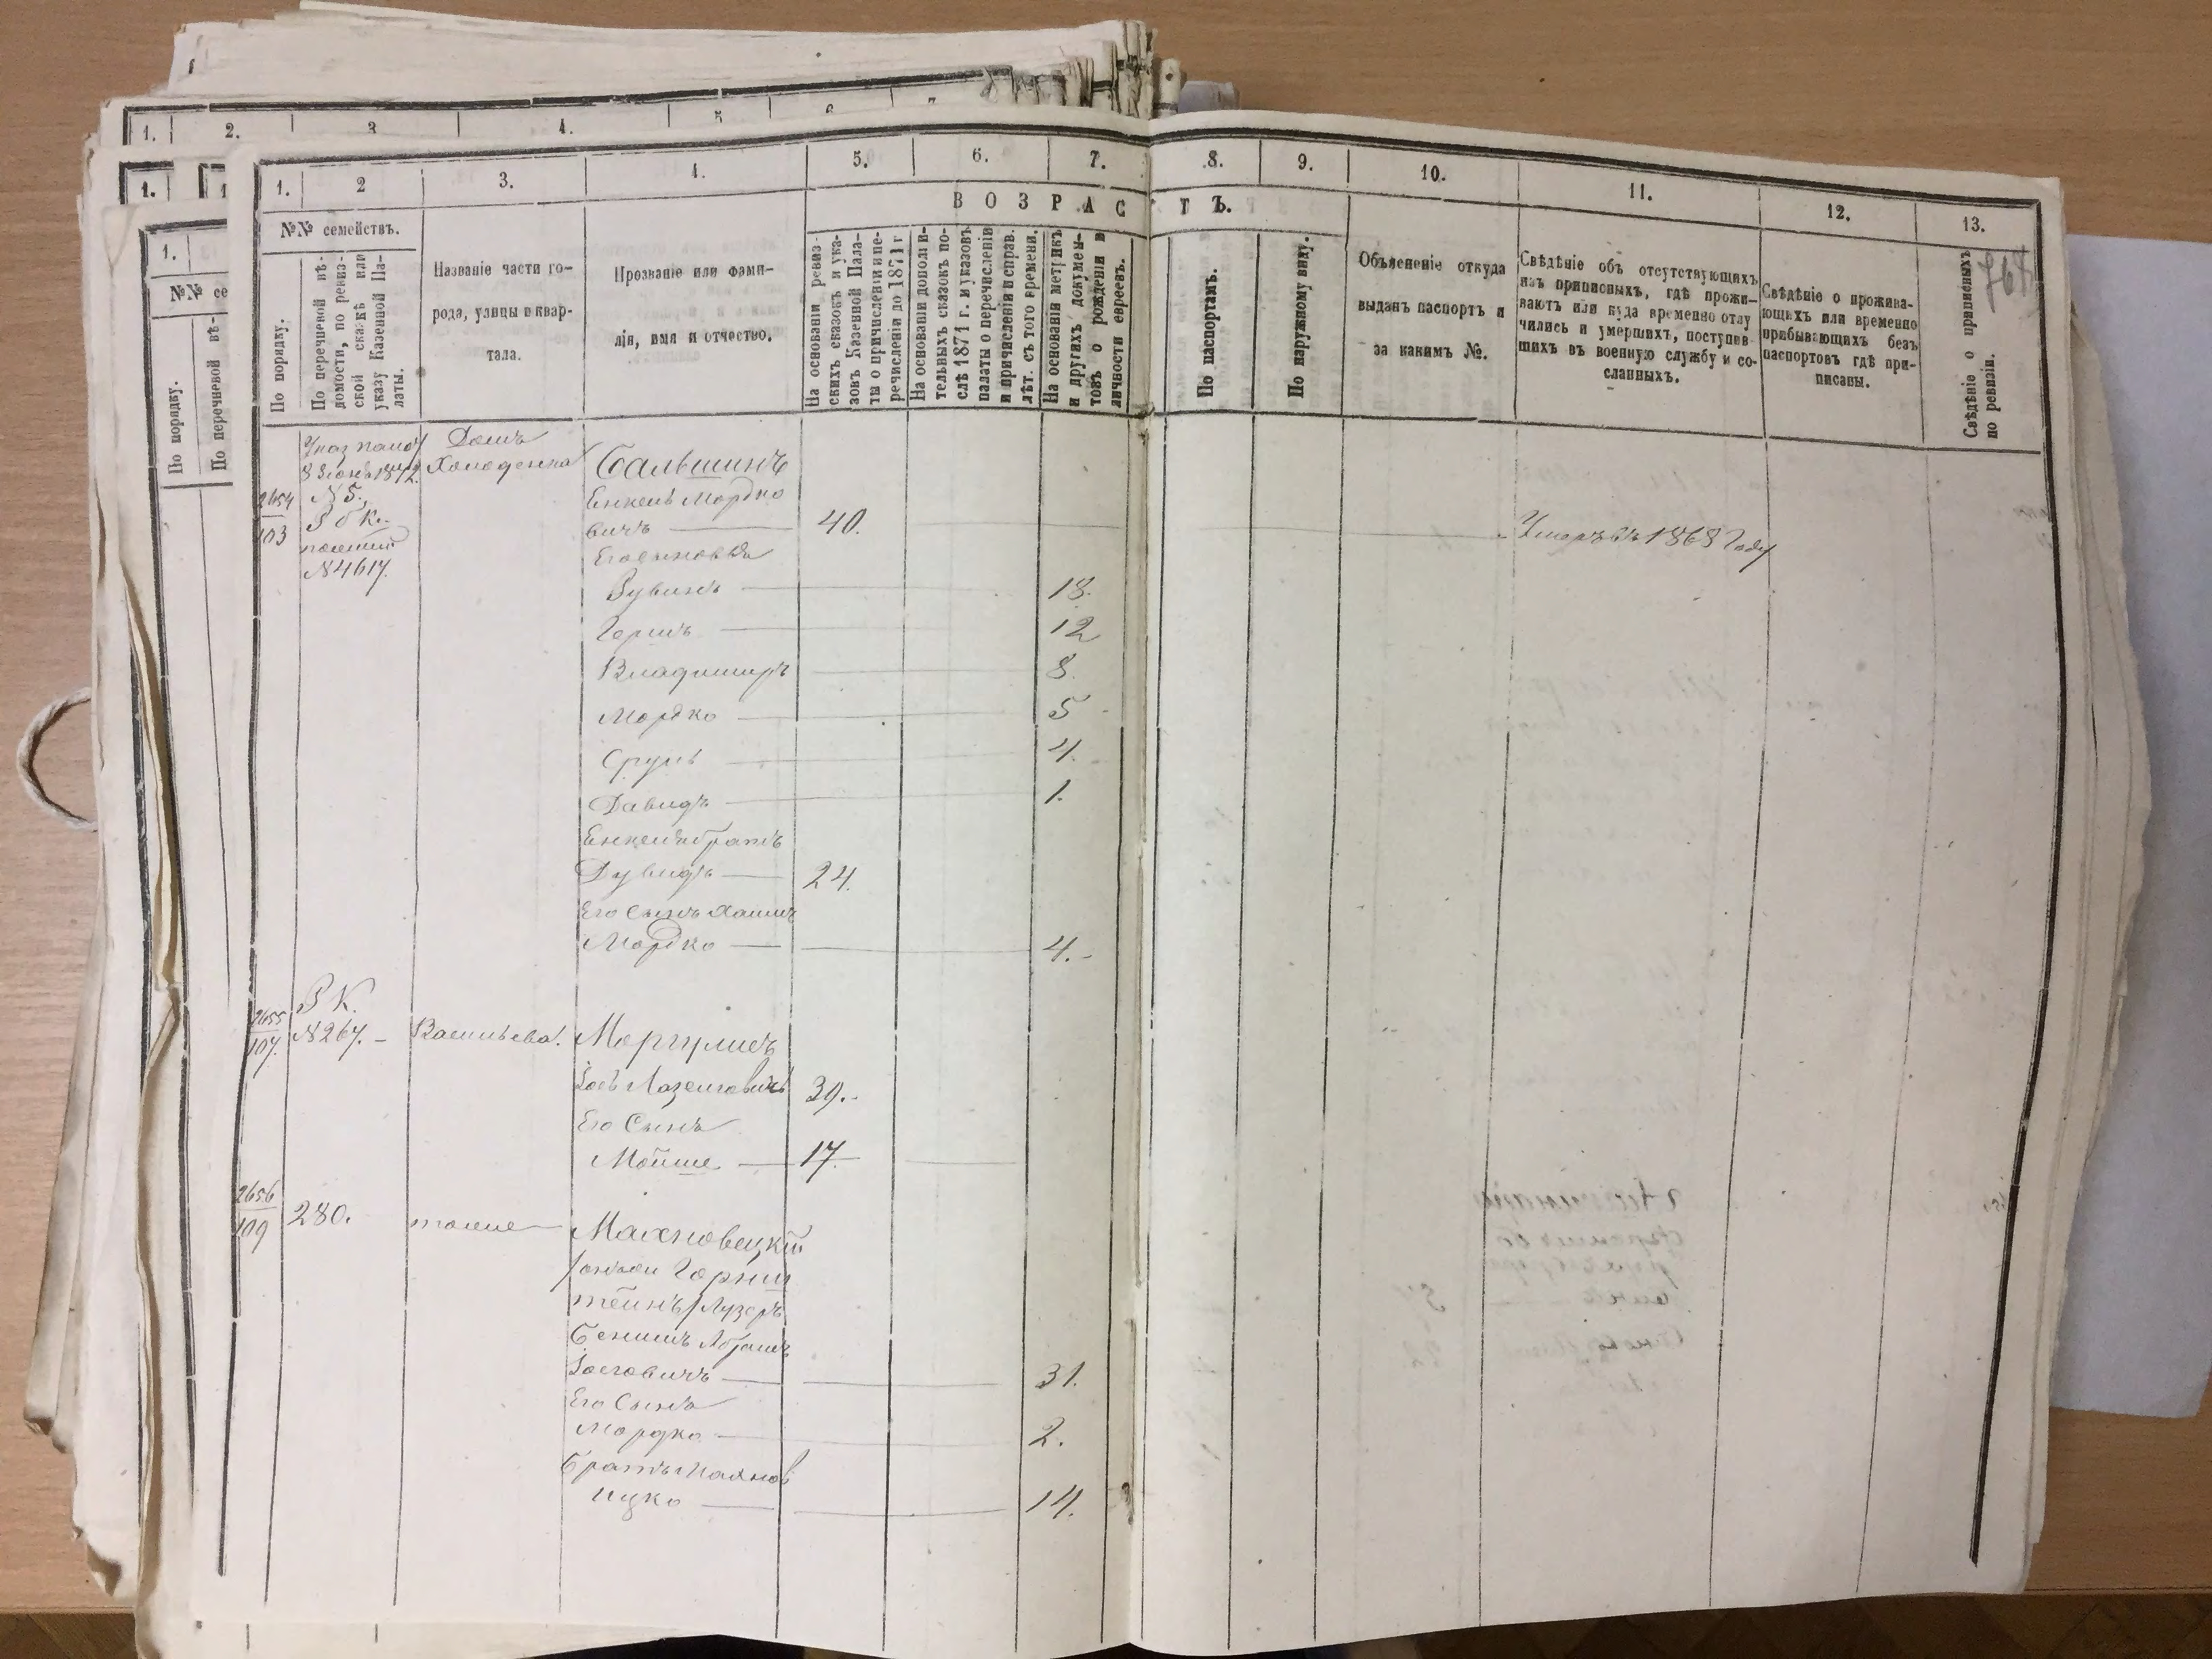 1. 2. 3 4. 5 6 7
1. 1
1.
№№ се
По порядку.
По перечневой вѣ-
1. 2 3. 4. 5. 6. 7. 8. 9. 10. 11. 12. 13.
№№ семействъ.
В О З Р А С Т Ъ.
По порядку.
По перечневой вѣ-
домости, по ревиз-
ской сказкѣ или
указу Казенной Па-
латы.
Названіе части го-
рода, улицы и квар-
тала.
Прозваніе или фами-
лія, имя и отчество.
На основаніи ревиз-
скихъ сказокъ и ука-
зовъ Казенной Пала-
ты о причисленіи и пе-
речисленіи до 1871 г
На основаніи дополни-
тельныхъ сказокъ по-
слѣ 1871 г. и указовъ
палаты о перечисленіи
и причисленіи и справ.
лѣт. съ того времени.
На основаніи метрикъ
и другихъ докумен-
товъ о рожденіи и
личности евреевъ.
По паспортамъ.
По наружному виду.
Объясненіе откуда
выданъ паспортъ и
за какимъ №.
Свѣдѣніе объ отсутствующихъ
изъ приписныхъ, гдѣ прожи-
ваютъ или куда временно отлу
чились и умершихъ, поступив-
шихъ въ военную службу и со-
сланныхъ.
Свѣдѣніе о прожива-
ющихъ или временно
прибывающихъ безъ
паспортовъ гдѣ при-
писаны.
Свѣдѣніе о приписныхъ
по ревизіи.
Домъ
Указ
N 5.
2654
103
N 4617.
Бальшинъ
Енкель Мордко
вичъ 40. Умеръ въ 1868 Году
Его сыновья
Рувинъ 18.
Гершъ 12
Владимиръ 8.
Мордко 5
Сруль 4.
Давидъ 1.
Енкеля братъ
Дувидъ 24.
Его Сынъ Хаимъ
Мордко 4.
Р К.
2655
107. N 267. Васильева. Моргулисъ
Іось Лазеровичъ 39.
Его Сынъ
Мойше 17.
2656
109 280. тоже Махновецкій
Горнш
тейнъ / Лузеръ
Бенишъ Абрамъ
Іосеовичъ 31.
Его Сынъ
Мордко 2.
Братъ
Ицко 14.